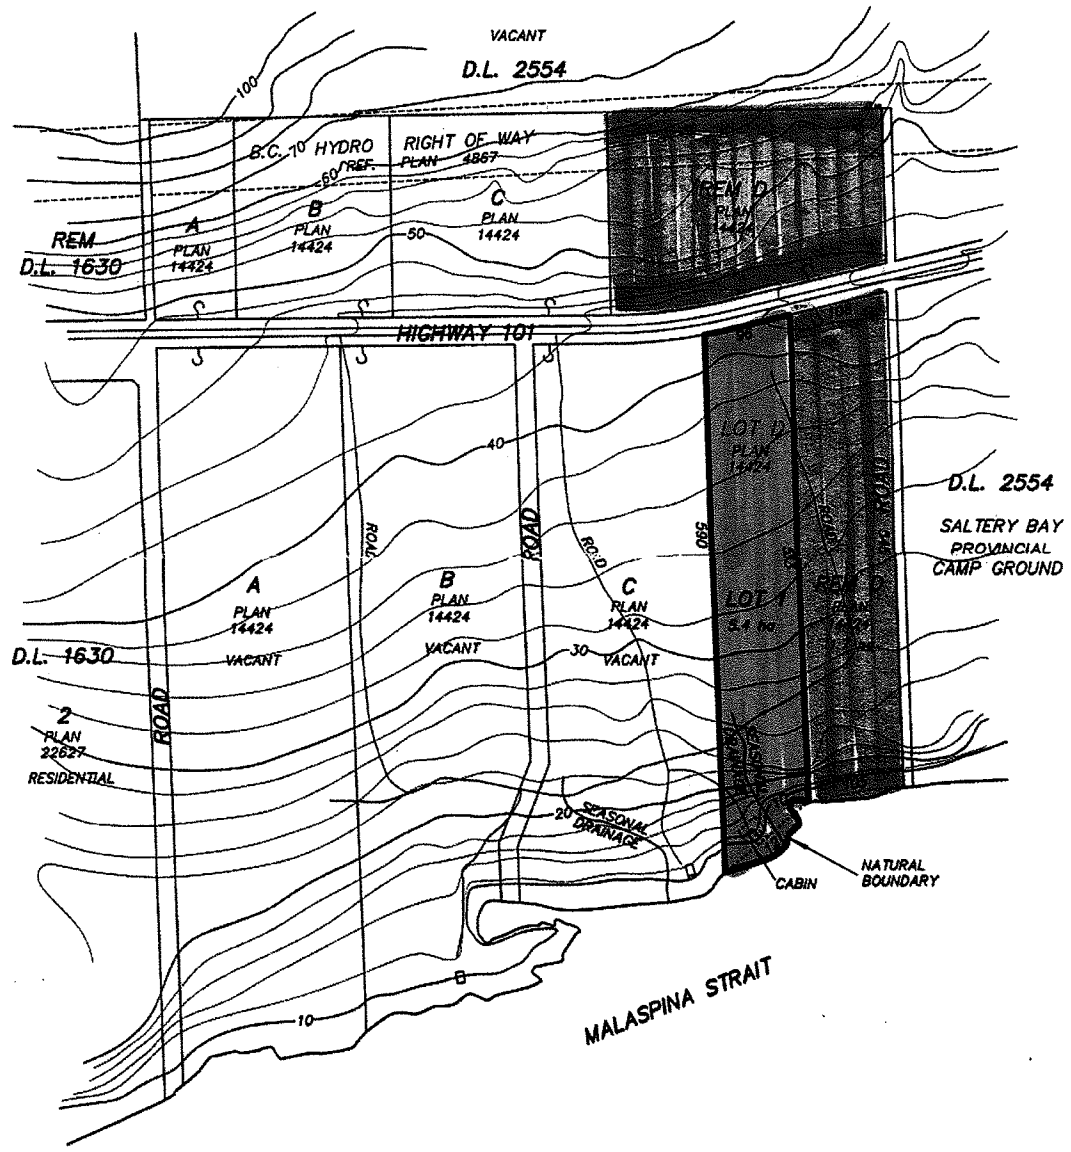 VACANT
D.L. 2554
100
B.C. HYDRO RIGHT OF WAY
70
60
REF. PLAN 4867
REM D
PLAN
14424
C
PLAN
14424
B
PLAN
14424
A
PLAN
14424
50
REM
D.L. 1630
HIGHWAY 101
40
LOT D
PLAN
14424
ROAD
D.L. 2554
SALTERY BAY
PROVINCIAL
CAMP GROUND
ROAD
ROAD
590
ROAD
A
PLAN
14424
VACANT
B
PLAN
14424
VACANT
C
PLAN
14424
VACANT
30
LOT 1
5.4 ha
REM D
PLAN
14424
D.L. 1630
2
PLAN
22627
RESIDENTIAL
ROAD
20
SEASONAL
DRAINAGE
SEASONAL
DRAINAGE
NATURAL
BOUNDARY
CABIN
10
MALASPINA STRAIT